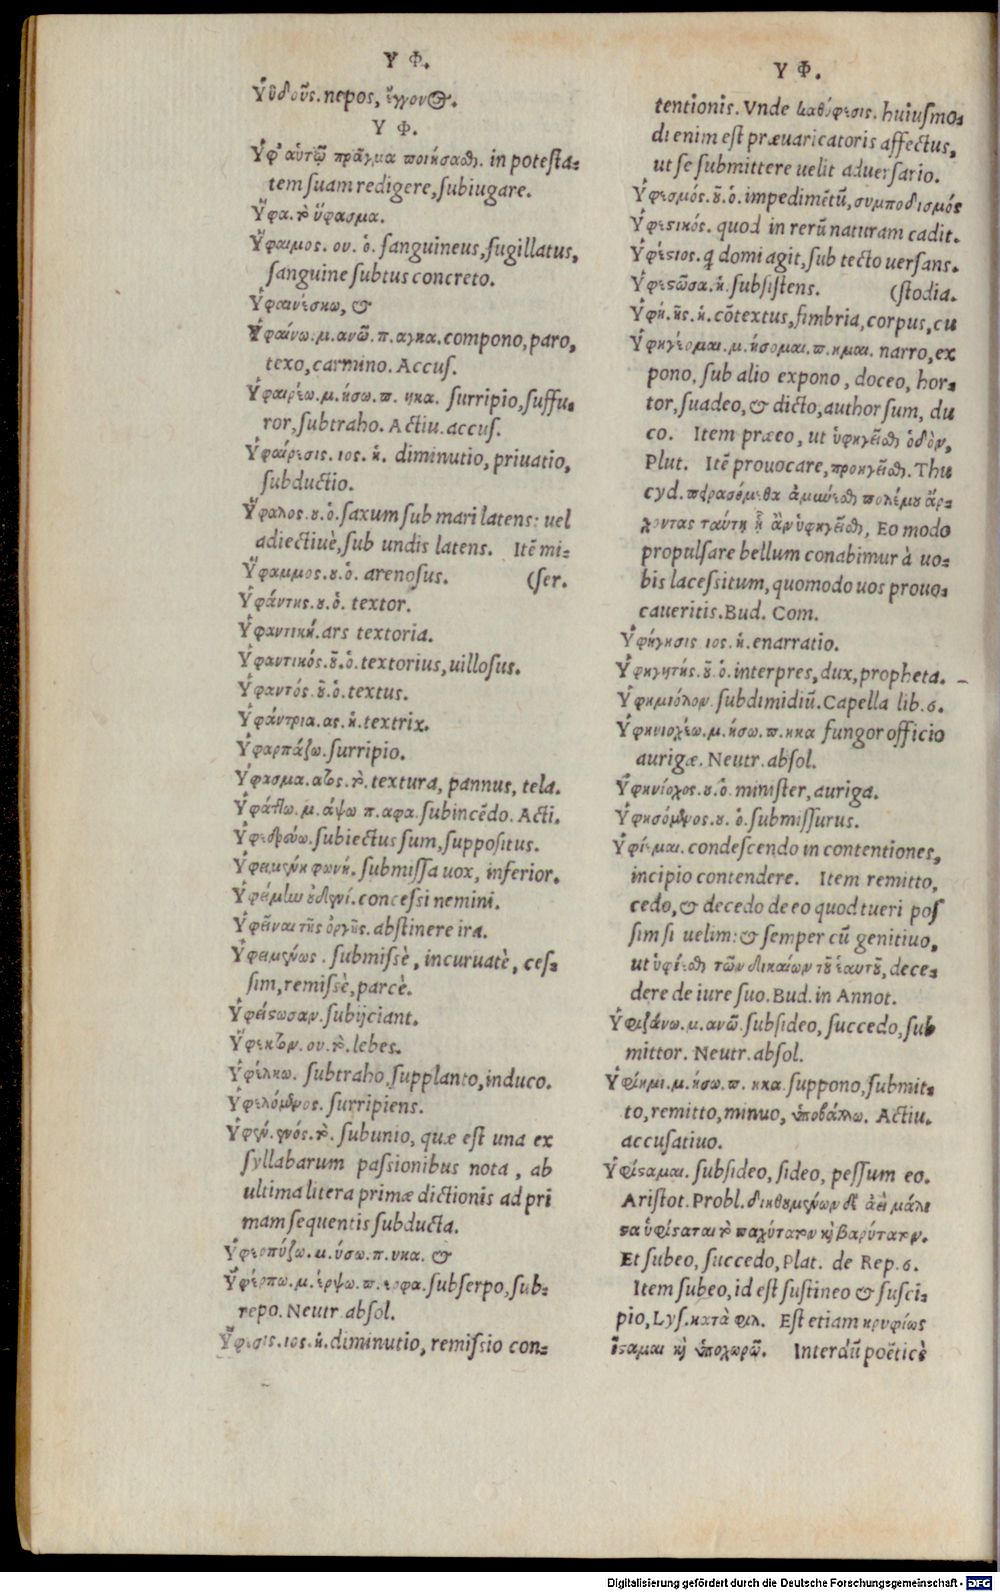 Υ Φ.
Ὑϊδοῦς. nepos, ἔγγονος.
Υ Φ.
Ὑφ' αὑτῷ πρᾶγμα ποιήσασθαι. in potesta-
tem suam redigere, subiugare.
Ὕφα. τὸ ὕφασμα.
Ὕφαιμος. ου. ὁ. sanguineus, sugillatus,
sanguine subtus concreto.
Ὑφαινέσκω, &
Ὑφαίνω. μ. ανῶ. π. αγκα. compono, paro,
texo, carmino. Accus.
Ὑφαιρέω. μ. ήσω. π. ηκα. surripio, suffu-
ror, subtraho. Actiu. accus.
Ὑφαίρεσις. ιος. ἡ. diminutio, priuatio,
subductio.
Ὕφαλος. ου. ὁ. saxum sub mari latens: uel
adiectiuè, sub undis latens. Itē mi-
Ὕφαμμος. ου. ὁ. arenosus. (ser.
Ὑφάντης. ου. ὁ. textor.
Ὑφαντική. ars textoria.
Ὑφαντικός. οῦ. ὁ. textorius, uillosus.
Ὑφαντός. οῦ. ὁ. textus.
Ὑφάντρια. ας. ἡ. textrix.
Ὑφαρπάζω. surripio.
Ὕφασμα. ατος. τὸ. textura, pannus, tela.
Ὑφάπτω. μ. άψω π. αφα. subincēdo. Acti.
Ὑφεδρεύω. subiectus sum, suppositus.
Ὑφειμένη φωνή. submissa uox, inferior.
Ὑφείμην οὐδενί. concessi nemini.
Ὑφεῖναι τῆς ὀργῆς. abstinere ira.
Ὑφειμένως. submissè, incuruatè, ces-
sim, remissè, parcè.
Ὑφείτωσαν. subijciant.
Ὕφεκτον. ου. τὸ. lebes.
Ὑφέλκω. subtraho, supplanto, induco.
Ὑφελόμενος. surripiens.
Ὑφέν. ενός. τὸ. subunio, quæ est una ex
syllabarum passionibus nota, ab
ultima litera primæ dictionis ad pri
mam sequentis subducta.
Ὑφερπύζω. μ. ύσω. π. υκα. &
Ὑφέρπω. μ. έρψω. π. ερφα. subserpo, sub-
repo. Neutr. absol.
Ὕφεσις. ιος. ἡ. diminutio, remissio con-
Υ Φ.
tentionis. Vnde καθύφεσις. huiusmo-
di enim est præuaricatoris affectus,
ut se submittere uelit aduersario.
Ὑφεσμός. οῦ. ὁ. impedimētū, συμποδισμός
Ὑφεστικός. quod in rerū naturam cadit.
Ὑφέστιος. q domi agit, sub tecto uersans.
Ὑφεστῶσα. ἡ. subsistens. (stodia.
Ὑφή. ῆς. ἡ. cōtextus, fimbria, corpus, cu
Ὑφηγέομαι. μ. ήσομαι. π. ημαι. narro, ex
pono, sub alio expono, doceo, hor-
tor, suadeo, & dicto, author sum, du
co. Item præeo, ut ὑφηγεῖσθαι ὁδὸν,
Plut. Itē prouocare, προηγεῖσθαι. Thu
cyd. πειρασόμεθα ἀμύνεσθαι πολέμου ἄρ-
χοντας ταύτῃ ᾗ ἂν ὑφηγεῖσθαι, Eo modo
propulsare bellum conabimur à uo-
bis lacessitum, quomodo uos prouo-
caueritis. Bud. Com.
Ὑφήγησις ιος. ἡ. enarratio.
Ὑφηγητής. οῦ. ὁ. interpres, dux, propheta.
Ὑφημιόλον. subdimidiū. Capella lib. 6.
Ὑφηνιοχέω. μ. ήσω. π. ηκα fungor officio
aurigæ. Neutr. absol.
Ὑφηνίοχος. ου. ὁ. minister, auriga.
Ὑφησόμενος. ου. ὁ. submissurus.
Ὑφίεμαι. condescendo in contentiones,
incipio contendere. Item remitto,
cedo, & decedo de eo quod tueri pos
sim si uelim: & semper cū genitiuo,
ut ὑφίεσθαι τῶν δικαίων τοῦ ἑαυτοῦ, dece-
dere de iure suo. Bud. in Annot.
Ὑφιζάνω. μ. ανῶ. subsideo, succedo, sub
mittor. Neutr. absol.
Ὑφίημι. μ. ήσω. π. ηκα. suppono, submit-
to, remitto, minuo, ὑποβάλλω. Actiu.
accusatiuo.
Ὑφίσταμαι. subsideo, sideo, pessum eo.
Aristot. Probl. διηθουμένων δὲ ἀεὶ μάλι
στα ὑφίσταται τὸ παχύτατον καὶ βαρύτατον.
Et subeo, succedo, Plat. de Rep. 6.
Item subeo, id est sustineo & susci-
pio, Lys. κατὰ φιλ. Est etiam κρυφίως
ἵσταμαι καὶ ὑποχωρῶ. Interdū poēticè
Digitalisierung gefördert durch die Deutsche Forschungsgemeinschaft - DFG